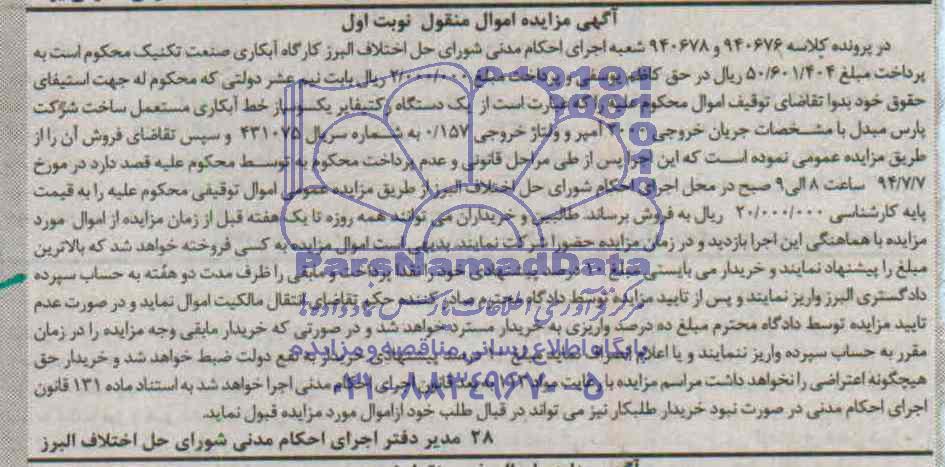 آگهی مزایده اموال منقول نوبت اول
در پرونده کلاسه ۹۴۰۶۷۶ و ۹۴۰۶۷۸ شعبه اجرای احکام مدنی شورای حل اختلاف البرز کارگاه آبکاری صنعت تکنیک محکوم است به
پرداخت مبلغ ۵۰/۶۰۱/۴۰۴ ریال در حق کاظم یوسفی و پرداخت مبلغ ۲/۰۰۰/۰۰۰ ریال بابت نیم عشر دولتی که محکوم له جهت استیفای
حقوق خود بدوا تقاضای توقیف اموال محکوم علیه را که عبارت است از یک دستگاه رکتیفایر یکسوساز خط آبکاری مستعمل ساخت شرکت
پارس مبدل با مشخصات جریان خروجی ۳۰۰۰ آمپر و ولتاژ خروجی ۰/۱۵۷ به شماره سریال ۴۳۱۰۷۵ و سپس تقاضای فروش آن را از
طریق مزایده عمومی نموده است که این اجرا پس از طی مراحل قانونی و عدم پرداخت محکوم به توسط محکوم علیه قصد دارد در مورخ
۹۴/۷/۷ ساعت ۸ الی۹ صبح در محل اجرای احکام شورای حل اختلاف البرز از طریق مزایده عمومی اموال توقیفی محکوم علیه را به قیمت
پایه کارشناسی ۲۰/۰۰۰/۰۰۰ ریال به فروش برساند. طالبین و خریداران می توانند همه روزه تا یک هفته قبل از زمان مزایده از اموال مورد
مزایده با هماهنگی این اجرا بازدید و در زمان مزایده حضورا شرکت نمایند. بدیهی است اموال مزایده به کسی فروخته خواهد شد که بالاترین
مبلغ را پیشنهاد نمایند و خریدار می بایستی مبلغ ۱۰ درصد پیشنهادی خود را نقدا پرداخت و مابقی را ظرف مدت دو هفته به حساب سپرده
دادگستری البرز واریز نمایند و پس از تایید مزایده توسط دادگاه محترم صادر کننده حکم تقاضای انتقال مالکیت اموال نماید و در صورت عدم
تایید مزایده توسط دادگاه محترم مبلغ ده درصد واریزی به خریدار مسترد خواهد شد و در صورتی که خریدار مابقی وجه مزایده را در زمان
مقرر به حساب سپرده واریز ننمایند و یا اعلام انصراف نماید مبلغ ۱۰ درصد پیشنهادی خریدار به نفع دولت ضبط خواهد شد و خریدار حق
هیچگونه اعتراضی را نخواهد داشت مراسم مزایده با رعایت مواد ۱۱۳ به بعد قانون اجرای احکام مدنی اجرا خواهد شد به استناد ماده ۱۳۱ قانون
اجرای احکام مدنی در صورت نبود خریدار طلبکار نیز می تواند در قبال طلب خود ازاموال مورد مزایده قبول نماید.
۲۸ مدیر دفتر اجرای احکام مدنی شورای حل اختلاف البرز
ParsNamadData
مرکز فرآوری اطلاعات پارس نماد داده ها
پایگاه اطلاع رسانی مناقصه و مزایده
۰۲۱-۸۸۳۴۹۶۷۰-۵